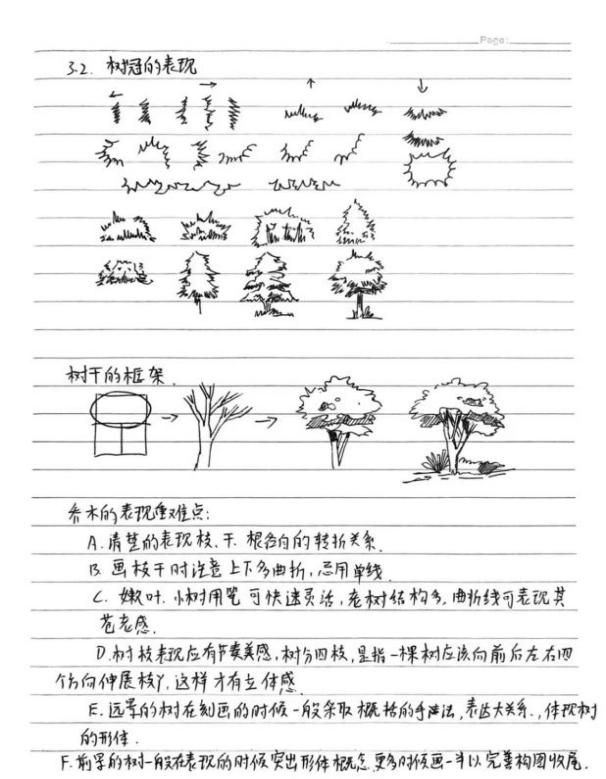 Page:
3.2. 树冠的表现
树干的框架.
乔木的表现重难点:
A. 清楚的表现枝、干、根各自的转折关系.
B. 画枝干时注意上下多曲折,忌用单线.
C. 嫩叶、小树用笔可快速灵活,老树结构多,曲折线可表现其
苍老感.
D. 树枝表现应有节奏美感,树分四枝,是指一棵树应该向前后左右四
个方向伸展枝丫,这样才有立体感.
E. 远景的树在刻画的时候一般采取概括的手法,表达大关系,体现树
的形体.
F. 前景的树一般在表现的时候突出形体概念,更多时候画一半以完善构图收尾.